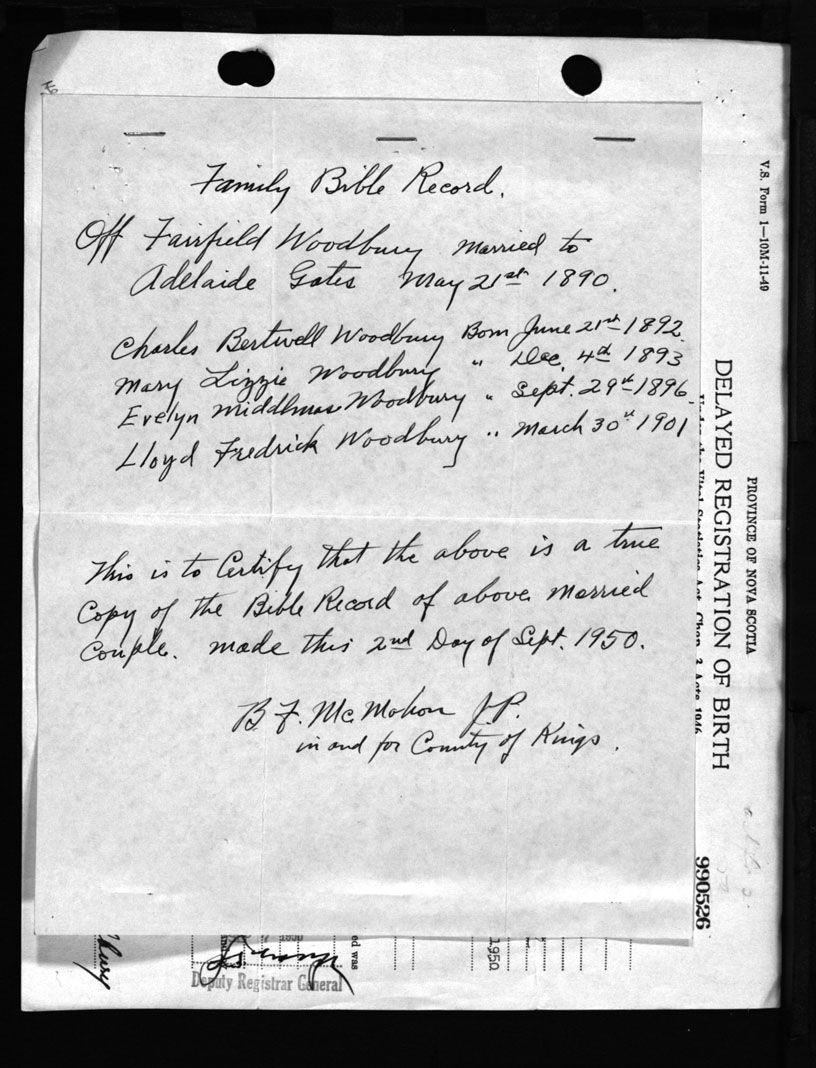 Family Bible Record.
Off Fairfield Woodbury married to
Adelaide Gates May 21st 1890.
Charles Bertwell Woodbury Born June 21st 1892.
Mary Lizzie Woodbury " Dec. 4th 1893
Evelyn Middlmas Woodbury " Sept. 29th 1896.
Lloyd Fredrick Woodbury " March 30th 1901
This is to Certify that the above is a true
Copy of the Bible Record of above married
Couple. made this 2nd Day of Sept. 1950.
B. F. McMahon J.P.
in and for County of Kings.
V.S. Form 1—10M-11-49
PROVINCE OF NOVA SCOTIA
DELAYED REGISTRATION OF BIRTH
Under the Vital Statistics Act, Chap. 3 Acts 1946
990526
1950
ed was
Deputy Registrar General